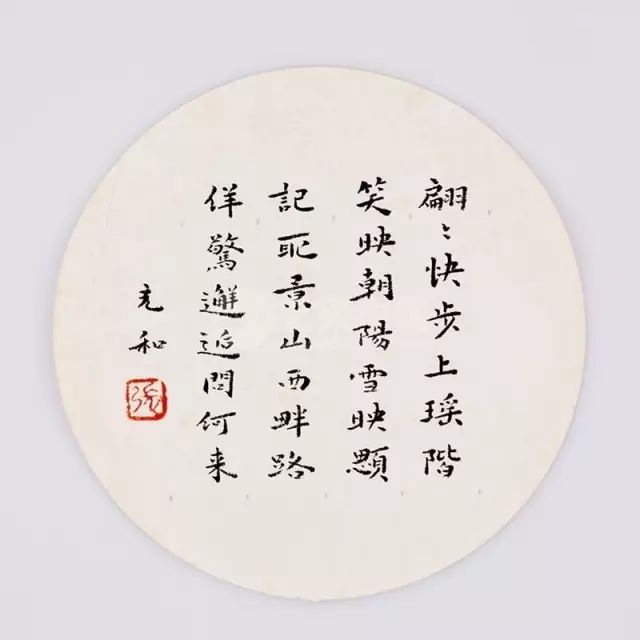 翩〻快步上瑤階
笑映朝陽雪映顋
記取景山西畔路
佯驚邂逅問何来
充和
張